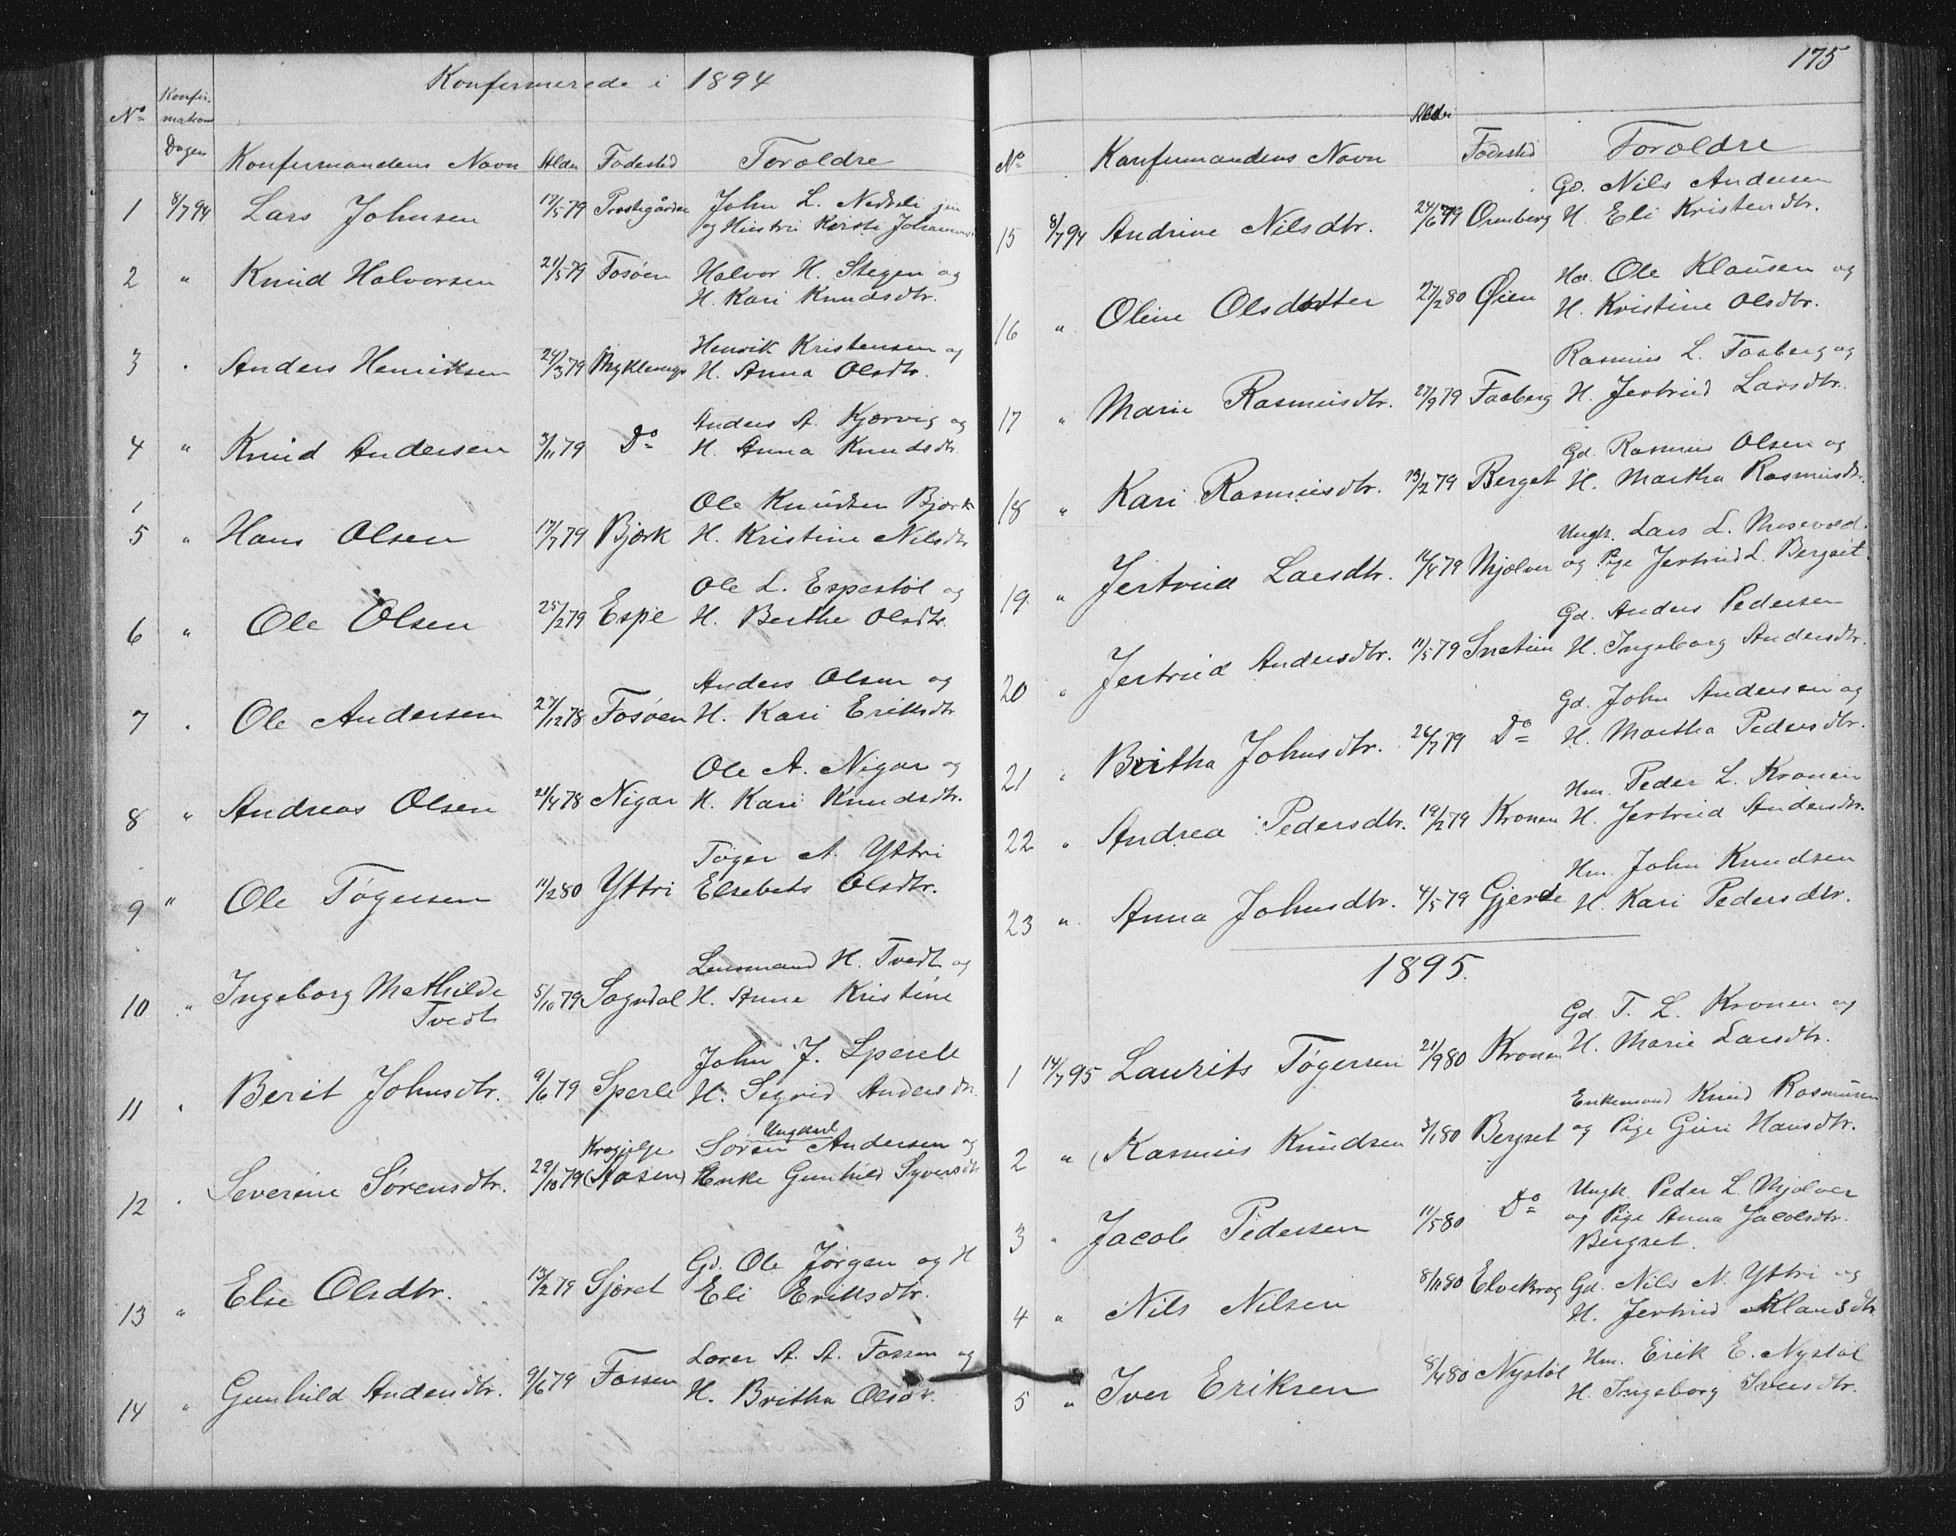 Konfirmerede i 1894
No Konfirmations Dagen Konfirmandens Navn Alder Fødested Foræeldre
1 8/7 94 Lars Johnsen 17/5 79 Prestegården John L. Nedreli jun
og Hustru Kirsti
2 " Knud Halvorsen 21/5 79 Fosøen Halvor H. Stegen og
H. Kari Knudsdtr.
3 " Anders Henriksen 24/3 79 Henrik Kristensen og
H. Anna Olsdtr.
4 " Knud Andersen 3/11 79 Do Anders A. Kjærvig og
H. Anna Knudsdtr.
5 " Hans Olsen 17/7 79 Bjørk Ole Knudsen Bjørk
H. Kristine Nilsdtr
6 " Ole Olsen 25/2 79 Espe Ole L. Espestøl og
H. Berthe Olsdtr.
7 " Ole Andersen 27/12 78 Fosøen Anders Olsen og
H. Kari Eriksdtr
8 " Andreas Olsen 21/4 78 Nigar Ole A. Nigar og
H. Kari Knudsdtr.
9 " Ole Tøgersen 11/2 80 Yttri Tøger A. Yttri
Elsebets Olsdtr.
10 " Ingeborg Mathilde 5/10 79 Sogndal Lensmand H. Tvedt og
Tvedt H. Anne Kristine
11 " Berit Johnsdtr. 9/6 79 Sperle John J. Sperle
H. Sigrid Andersdtr.
12 " Severine Sørensdtr. 29/10 79 (Aasen) Ungkarl Søren Andersen og
Enke Gunhild Syversdtr
13 " Else Olsdtr. 13/2 79 Sjøret Gd. Ole Jørgen og H
Eli Eriksdtr.
14 " Gunhild Andersdtr. 9/6 79 Fossen Lærer A. A. Fossen og
H. Britha Olsdtr.
175
No Konfirmandens Navn Alder Fødested Forældre
15 8/7 94 Andrine Nilsdtr. 24/6 79 Ormberg Gd. Nils Andersen
H. Eli Kristendtr.
16 " Oline Olsdotter 27/2 80 Øien Hd. Ole Klausen og
H. Kristine Olsdtr.
17 " Marie Rasmusdtr. 27/9 79 Faaberg Rasmus L. Faaberg og
H. Jertrud Larsdtr.
18 " Kari Rasmusdtr. 13/2 79 Berget Gd. Rasmus Olsen og
H. Martha Rasmusdtr.
19 " Jertrud Larsdtr. 16/4 79 Mjølver Ungk. Lars L. Musevold
og Pige Jertrud L. Bergset.
20 " Jertrud Andersdtr. 11/5 79 Snetun Gd. Anders Pedersen
H. Ingeborg Andersdtr.
21 " Britha Johnsdtr. 26/7 79 Do Gd. John Andersen og
H. Martha Pedersdtr.
22 " Andrea Pedersdtr. 19/2 79 Kronen Hm. Peder L. Kronen
H. Jertrud Andersdtr.
23 " Anna Johnsdtr. 4/5 79 Gjerde Hm. John Knudsen
H. Kari Pedersdtr.
1895.
1 14/7 95 Laurits Tøgersen 21/9 80 Kronen Gd. T. L. Kronen og
H. Marie Larsdtr.
2 " Rasmus Knudsen 3/1 80 Bergset Enkemand Knud Rasmusen
og Pige Guri Hansdtr.
3 " Jacob Pedersen 11/5 80 Do Ungk. Peder L. Mjølver
og Pige Anna Jacobsdtr.
Bergset.
4 " Nils Nilsen 8/11 80 Elvekrog Gd. Nils N. Yttri og
H. Jertrud Klausdtr
5 " Iver Eriksen 8/4 80 Nystøl Hm. Erik E. Nystøl
H. Ingeborg Iversdtr.